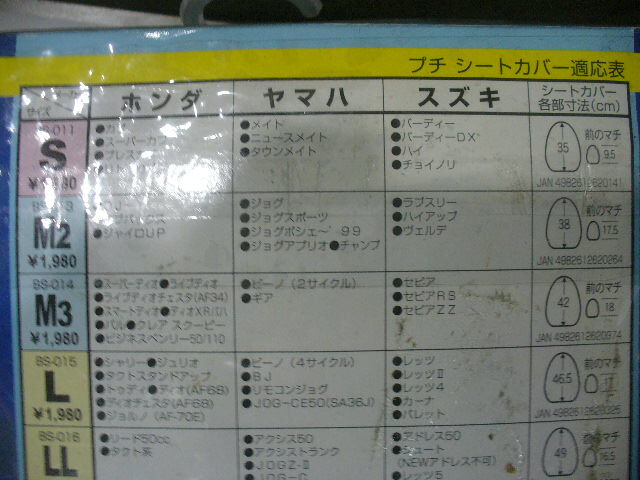 プチ シートカバー適応表
サイズ
ホンダ
ヤマハ
スズキ
シートカバー
各部寸法(cm)
S
●メイト
●ニュースメイト
●タウンメイト
●バーディー
●バーディーDX
●ハイ
●チョイノリ
35
前のマチ
9.5
JAN 4982612620141
M2
¥1,980
●ジャイロUP
●ジョグ
●ジョグスポーツ
●ジョグポシェ～'99
●ジョグアプリオ●チャンプ
●ラブスリー
●ハイアップ
●ヴェルデ
38
前のマチ
17.5
JAN 4982612620264
BS-014
M3
¥1,980
●スーパーディオ●ライブディオ
●ライブディオチェスタ(AF34)
●スマートディオ●ディオXRバハ
●パル●クレア スクーピー
●ビジネスベンリー50/110
●ビーノ (2サイクル)
●ギア
●セピア
●セピアRS
●セピアZZ
42
前のマチ
18
JAN 4982612620974
BS-015
L
¥1,980
●シャリー●ジュリオ
●タクトスタンドアップ
●トゥディ●ディオ(AF68)
●ディオチェスタ(AF68)
●ジョルノ (AF-70E)
●ビーノ (4サイクル)
●BJ
●リモコンジョグ
●JOG-CE50(SA36J)
●レッツ
●レッツⅡ
●レッツ4
●カーナ
●パレット
46.5
前のマチ
BS-016
LL
●リード50cc
●タクト系
●アクシス50
●アクシストランク
●JOGZ-Ⅱ
●アドレス50
(NEWアドレス不可)
●レッツ5
49
前のマチ